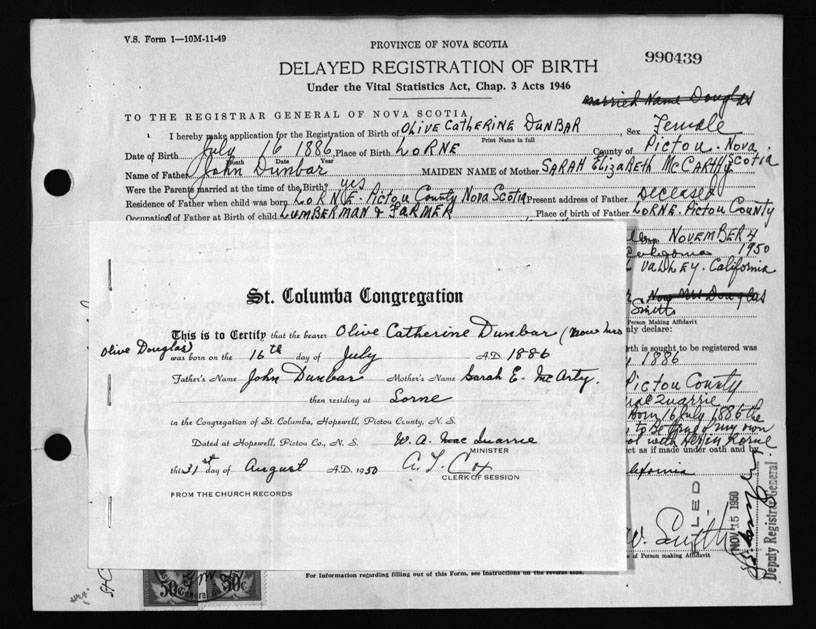 V.S. Form 1—10M-11-49
PROVINCE OF NOVA SCOTIA
990439
DELAYED REGISTRATION OF BIRTH
Under the Vital Statistics Act, Chap. 3 Acts 1946
Married Name Douglas
TO THE REGISTRAR GENERAL OF NOVA SCOTIA
I hereby make application for the Registration of Birth of OLIVE CATHERINE DUNBAR, Sex Female
Print Name in full
Date of Birth July 16 1886 Place of Birth LORNE County of PICTOU. NOVA
Month Date Year
SCOTIA
Name of Father John Dunbar MAIDEN NAME of Mother SARAH ElizaBETH McCARTHY
Were the Parents married at the time of the Birth? yes
Residence of Father when child was born LORNE. Pictou County Nova Scotia Present address of Father DECEASED
Occupation of Father at Birth of child LUMBERMAN & FARMER Place of birth of Father LORNE. PICTOU COUNTY
NOVEMBER 4
1950
VALLEY. California
Mrs Douglas
Smith
Person Making Affidavit
nly declare:
rth is sought to be registered was
1886
Pictou County
born 16 July 1886 the
my own
ct as if made under oath and
St. Columba Congregation
This is to Certify that the bearer Olive Catherine Dunbar (Now Mrs
Olive Douglas)
was born on the 16th day of July A.D. 1886
Father's Name John Dunbar Mother's Name Sarah E. McArty.
then residing at Lorne
in the Congregation of St. Columba, Hopewell, Pictou County, N. S.
Dated at Hopewell, Pictou Co., N. S. W. A. MacQuarrie
MINISTER
this 31st day of August A.D. 1950 A. T. Cox
CLERK OF SESSION
FROM THE CHURCH RECORDS
FILED
NOV 15 1950
Deputy Registrar General
W. Smith
e of Person making Affidavit
For Information regarding filling out of this Form, see instructions on the reverse side.
50¢ 50¢